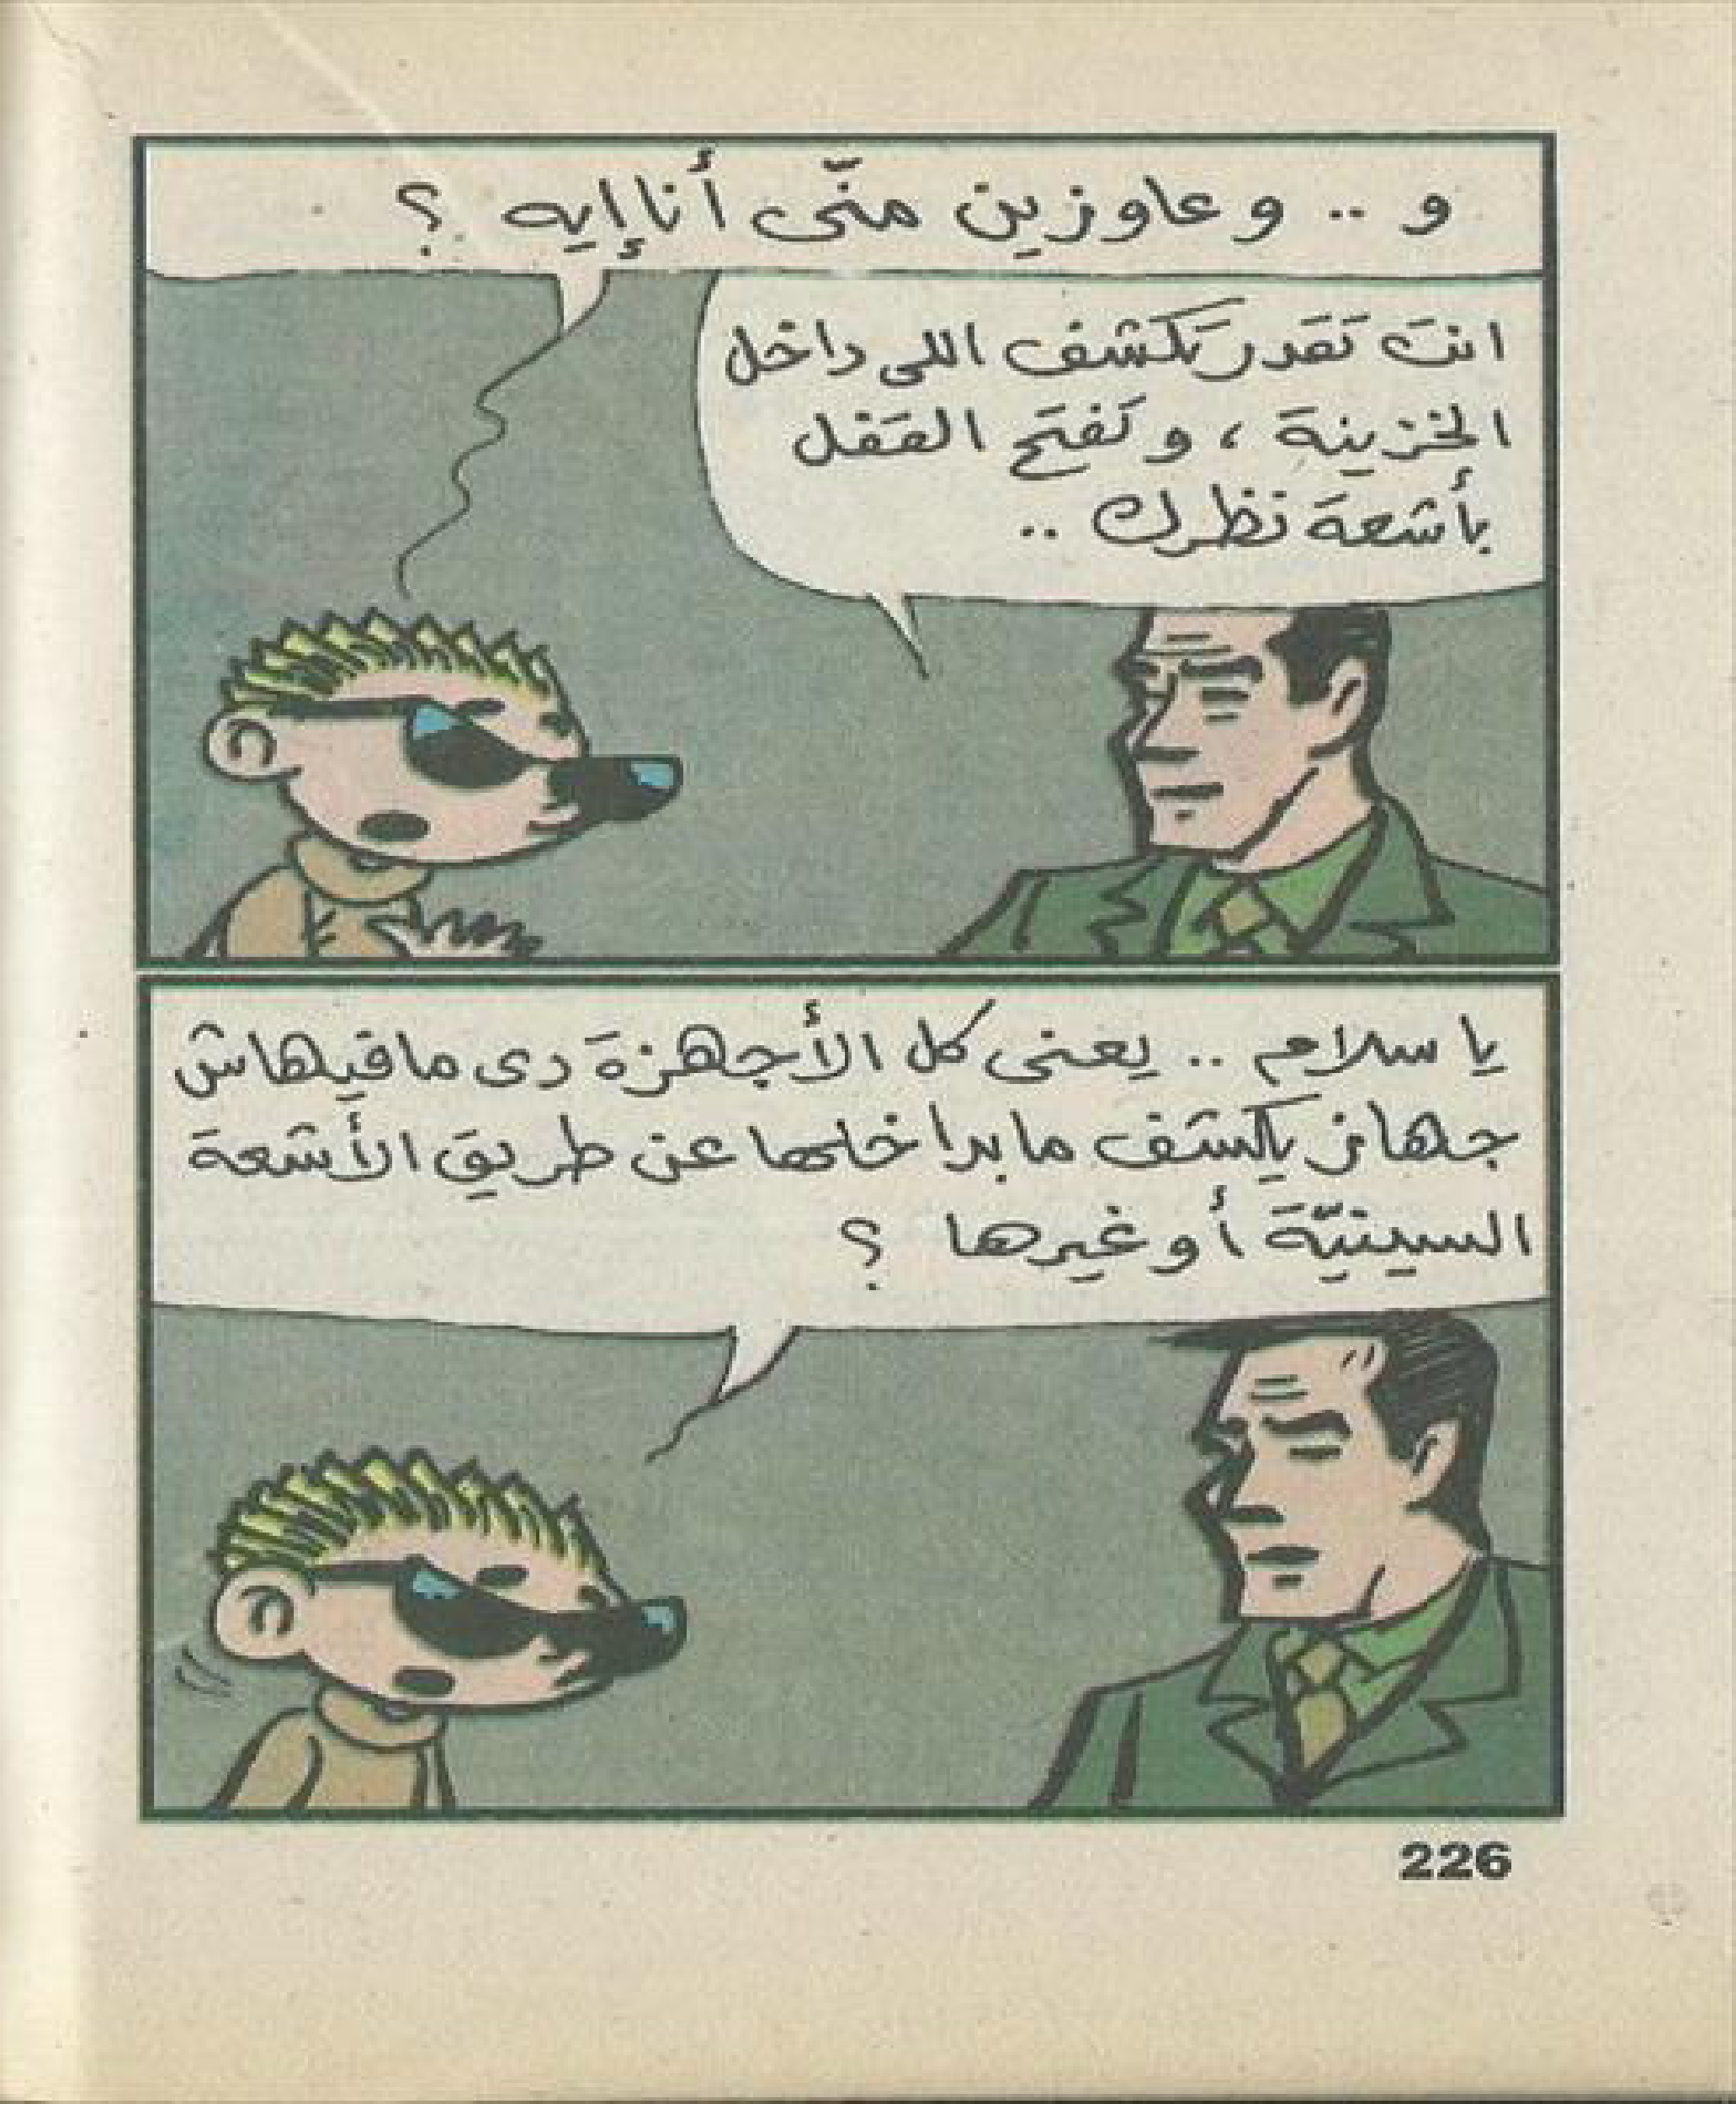 و .. وعاوزين منّى أنا إيه ؟
انتَ تَقدر تَكشف اللى داخل
الخزينة ، وتَفتح القفل
بأشعة نظرك ..
يا سلام .. يعنى كل الأجهزة دى مافيهاش
جهاز يكشف مابداخلها عن طريق الأشعة
السينيّة أو غيرها ؟
226